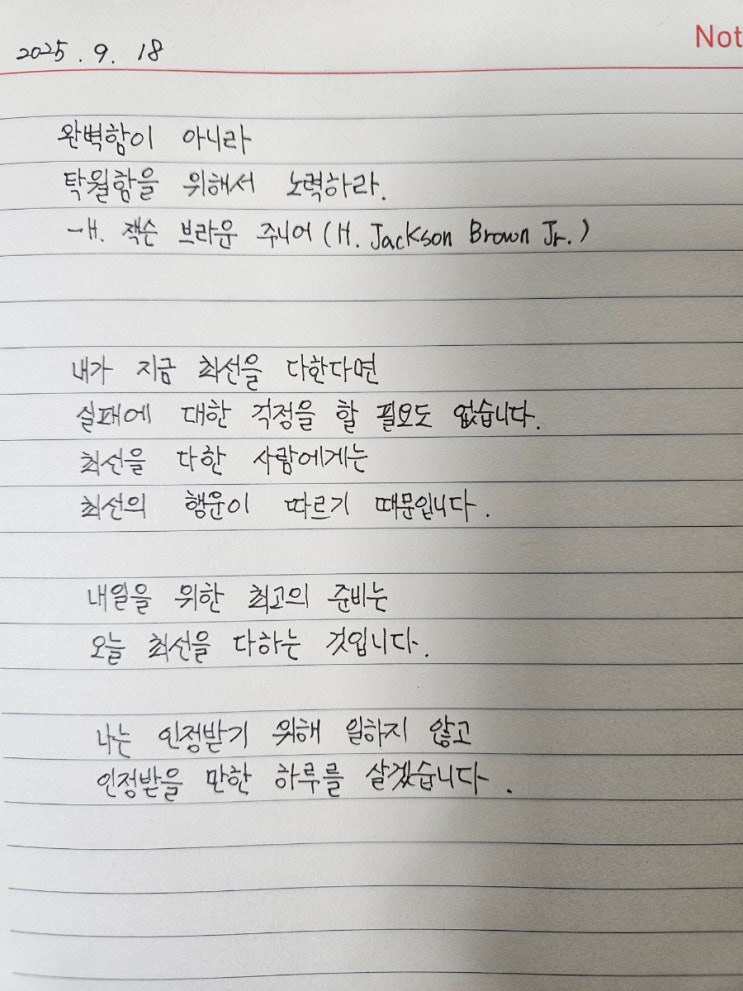 2025. 9. 18
Not
완벽함이 아니라
탁월함을 위해서 노력하라.
-H. 잭슨 브라운 주니어 (H. Jackson Brown Jr.)
내가 지금 최선을 다한다면
실패에 대한 걱정을 할 필요도 없습니다.
최선을 다한 사람에게는
최선의 행운이 따르기 때문입니다.
내일을 위한 최고의 준비는
오늘 최선을 다하는 것입니다.
나는 인정받기 위해 일하지 않고
인정받을 만한 하루를 살겠습니다.